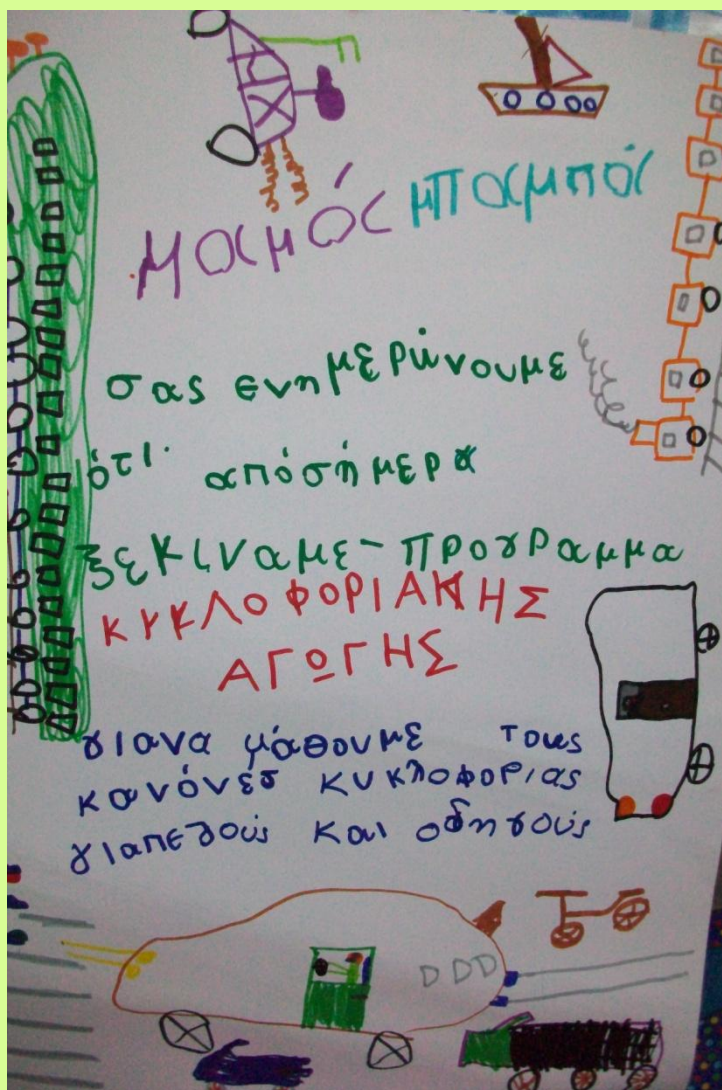 μαμά μπαμπά
σας ενημερώνουμε
ότι από σήμερα
ξεκινάμε - πρόγραμμα
ΚΥΚΛΟΦΟΡΙΑΚΗΣ
ΑΓΩΓΗΣ
γιανα μάθουμε τους
κανόνες κυκλοφορίας
γιαπεζούς και οδηγούς